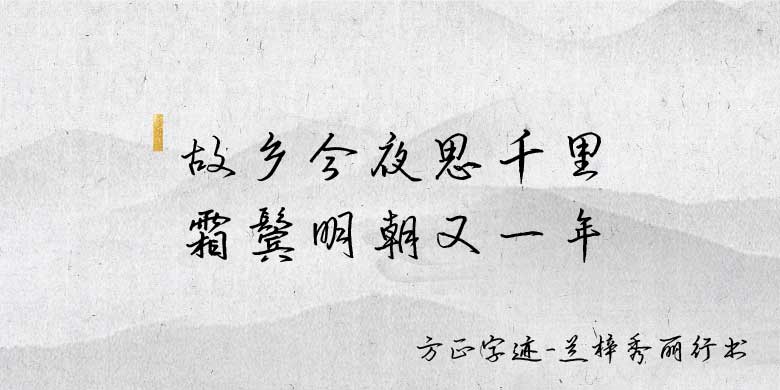 故乡今夜思千里
霜鬓明朝又一年
方正字迹-兰梓秀丽行书